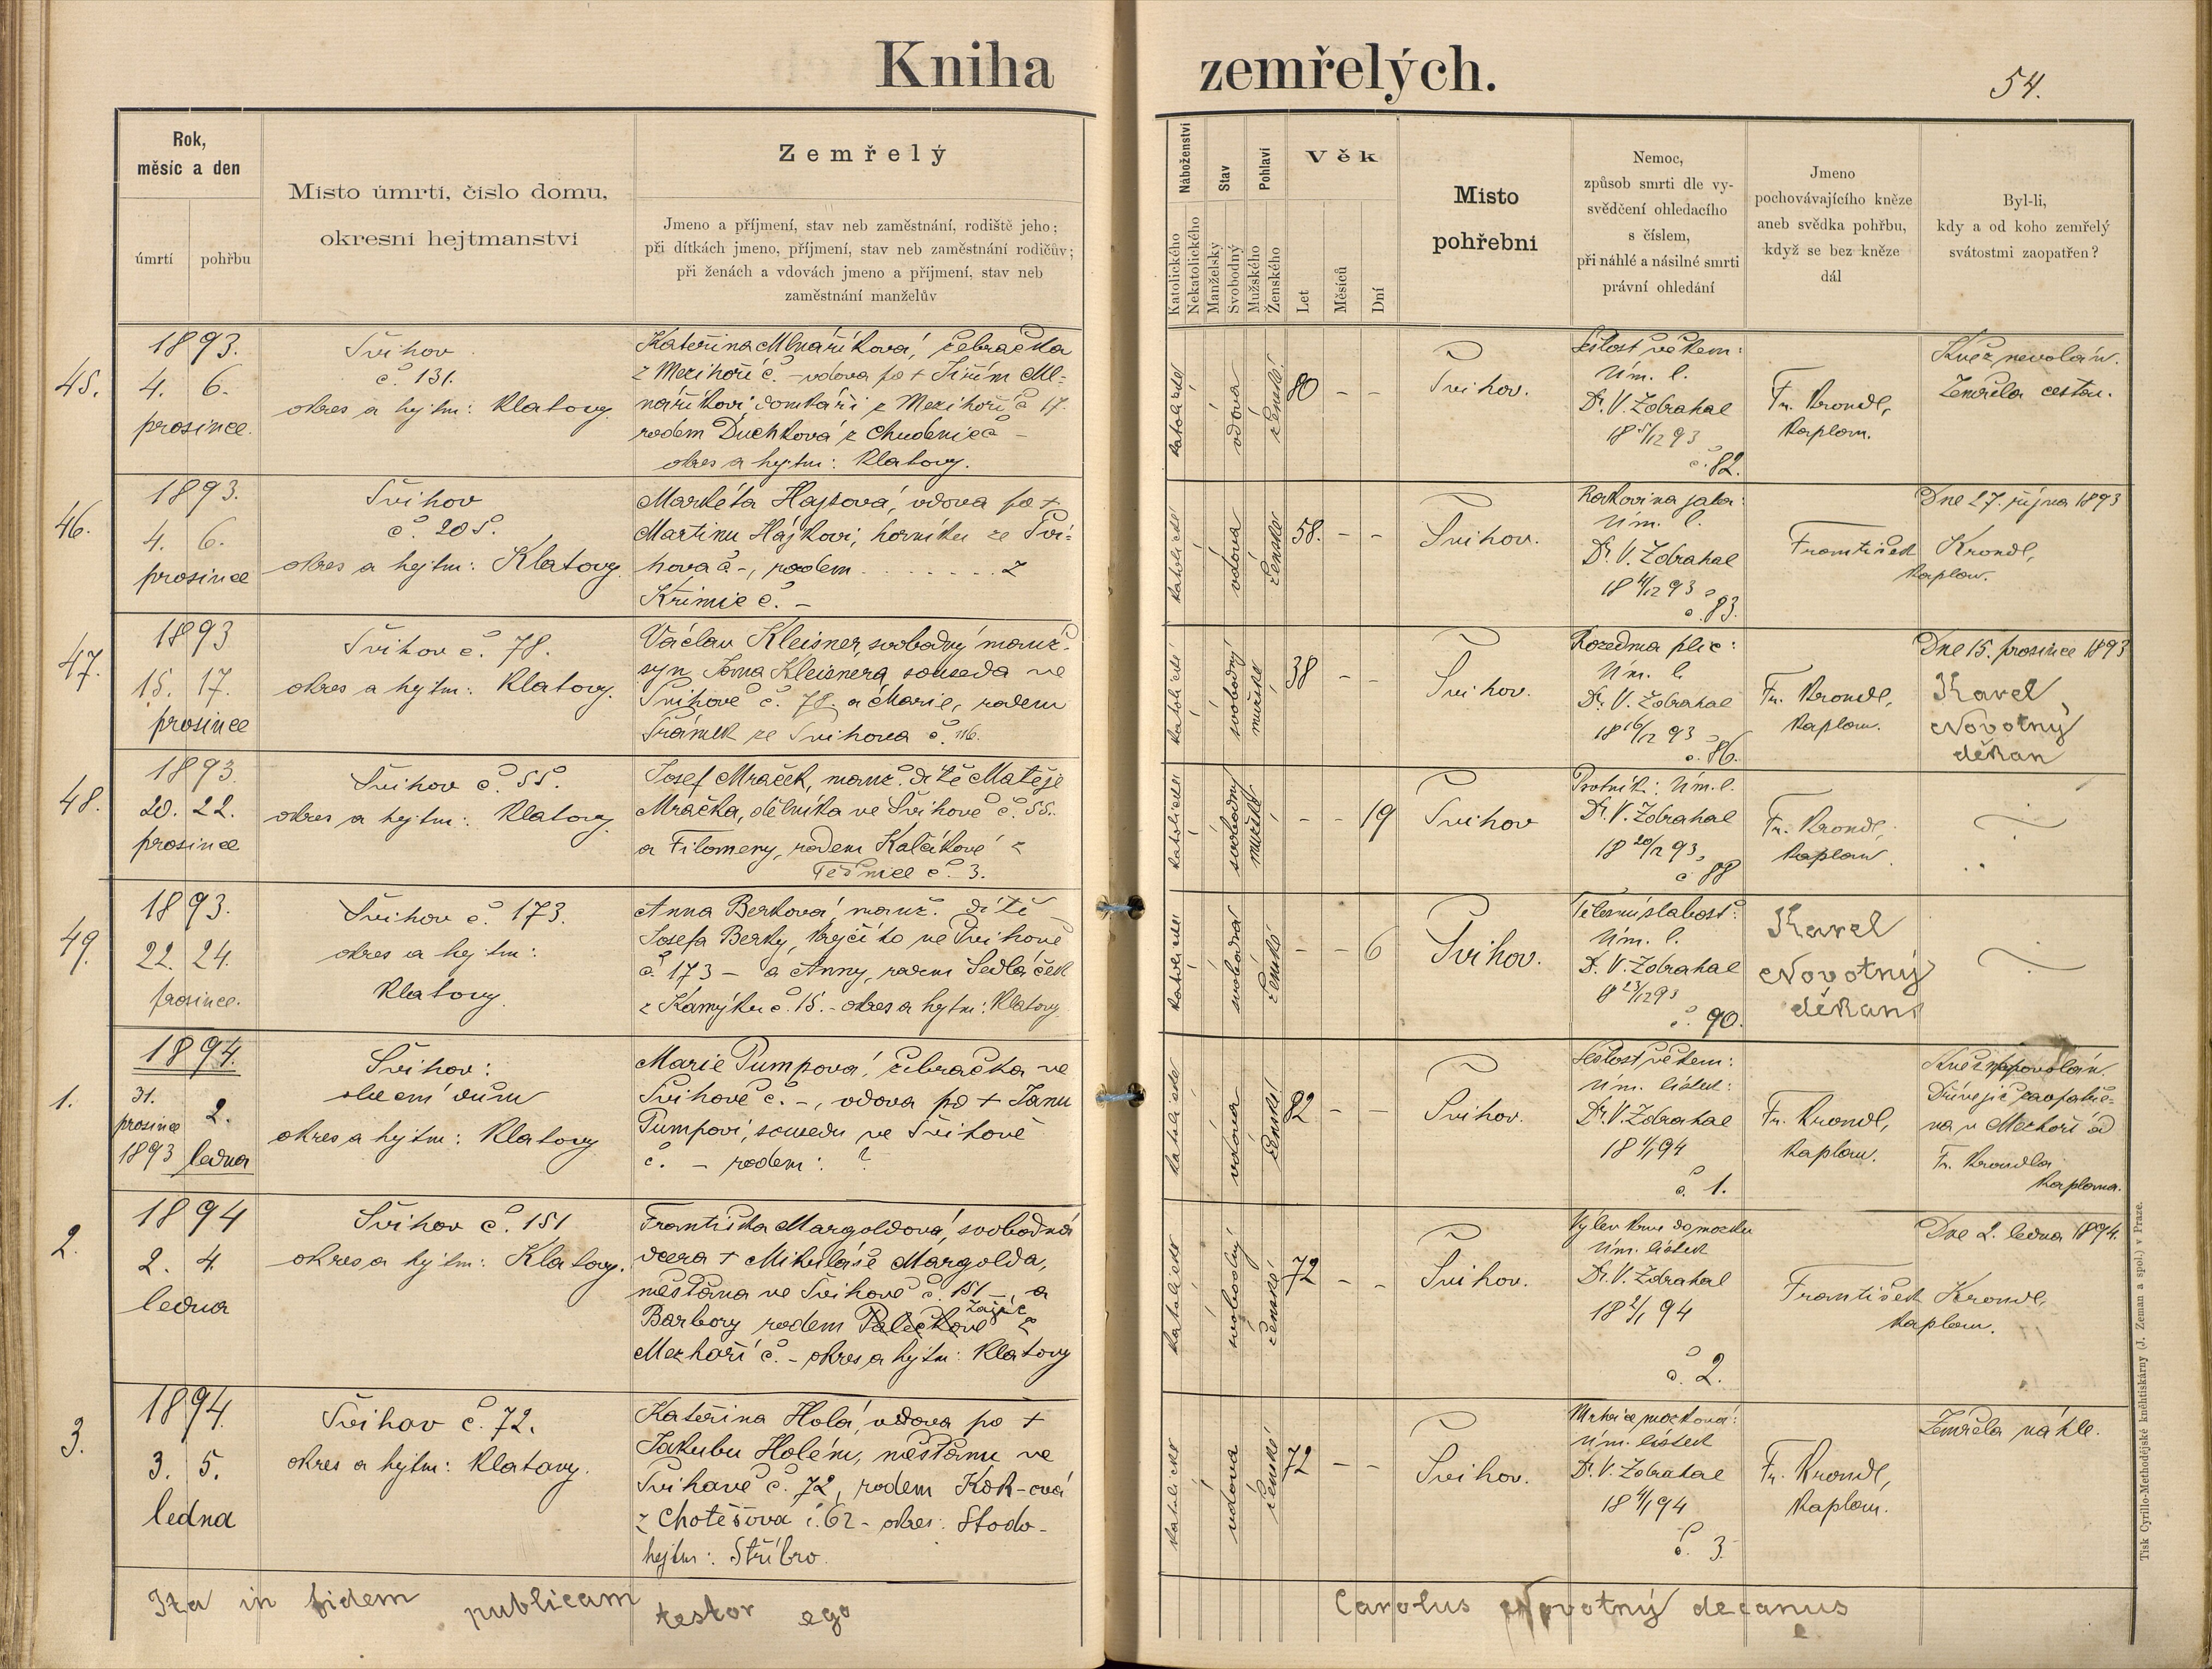 Kniha zemřelých.
54.
Rok,
měsíc a den
úmrtí
pohřbu
Místo úmrtí, číslo domu,
okresní hejtmanství
Zemřelý
Jmeno a příjmení, stav neb zaměstnání, rodiště jeho;
při dítkách jmeno, příjmení, stav neb zaměstnání rodičův;
při ženách a vdovách jmeno a příjmení, stav neb
zaměstnání manželův
Náboženství
Katolického
Nekatolického
Stav
Manželský
Svobodný
Pohlaví
Mužského
Ženského
Věk
Let
Měsíců
Dní
Místo
pohřební
Nemoc,
způsob smrti dle vy-
svědčení ohledacího
s číslem,
při náhlé a násilné smrti
právní ohledání
Jmeno
pochovávajícího kněze
aneb svědka pohřbu,
když se bez kněze
dál
Byl-li,
kdy a od koho zemřelý
svátostmi zaopatřen?
45.
1893.
4. 6.
prosince.
Švihov
č. 131.
okres a hejtm: Klatovy
Kateřina Mlnaříková, žebračka
z Mezihoří č. - vdova po +
naříkovi domkáři z Mezihoří č 17.
rodem Duchková z Chudenic č -
okres a hejtm: Klatovy.
katolické
vdova
ženské
80 - -
Švihov.
Sešlost věkem:
Úm. l.
Dr. V. Zdrahal
18 5/12 93
č. 82.
Fr. Krondl,
kaplan.
Kněz nevolán.
Zemřela cestou.
46.
1893.
4. 6.
prosince
Švihov
č. 205.
okres a hejtm: Klatovy
Markéta Hajková, vdova po +
Martinu Hájkovi, horníku ze Švi-
hova č -, rodem . . . . . . . . z
Křimic č. -
katolické
vdova
ženské
58. - -
Švihov.
Rakovina jater:
Úm. l.
Dr. V. Zdrahal
18 4/12 93
č. 83.
František Krondl,
kaplan.
Dne 27. října 1893
47.
1893
15. 17.
prosince
Švihov č. 78.
okres a hejtm: Klatovy.
Václav Kleisner, svobodný manž.
syn Jana Kleisnera, souseda ve
Švihově č. 78. a Marie, rodem
Šrámek ze Švihova č. 116.
katolické
svobodný
mužské
38 - -
Švihov.
Rozedma plic:
Úm. l.
Dr. V. Zdrahal
18 16/12 93
č. 86.
Fr. Krondl,
kaplan.
Dne 15. prosince 1893
Karel
Novotný
děkan
48.
1893.
20. 22.
prosince
Švihov č. 55.
okres a hejtm: Klatovy
Josef Mraček, manž. dítě Matěje
Mračka, dělníka ve Švihově č. 55.
a Filomeny, rodem Kalčíkové z
Tědnice č. 3.
katolické
svobodný
mužské
- - 19
Švihov
Psotník: Úm. l.
Dr. V. Zdrahal
18 20/12 93
č 88
Fr. Krondl,
kaplan.
49.
1893.
22. 24.
prosince.
Švihov č. 173.
okres a hejtm:
Klatovy.
Anna Berková, manž. dítě
Josefa Berky, krejčího ve Švihově
č. 173 - a Anny, rodem Sedláček
z Kamýku č. 15. - okres a hejtm: Klatovy
katolické
svobodná
ženské
- - 6
Švihov.
Tělesná slabost:
Úm. l.
Dr. V. Zdrahal
18 23/12 93
č. 90.
Karel
Novotný
děkan
1.
1894.
31.
prosince
1893
2.
ledna
Švihov:
obecní dům
okres a hejtm: Klatovy
Marie Pumpová, žebračka ve
Švihově č. -, vdova po + Janu
Pumpovi, sousedu ve Švihově
č. - rodem: ?
katolické
vdova
ženské
82 - -
Švihov.
Sešlost věkem:
Úm. lístek:
Dr. V. Zdrahal
18 1/1 94
č. 1.
Fr. Krondl,
kaplan.
Kněz nepovolán.
Dřívější zaopatře-
na v Mezhoří od
Fr. Krondla
kaplana.
2.
1894
2. 4.
ledna
Švihov č. 151
okres a hejtm: Klatovy.
Františka Margoldová, svobodná
dcera + Mikuláše Margolda,
měšťana ve Švihově č. 151 -, a
Barbory rodem Palečkové Zajíc z
Mezhoří č. - okres a hejtm: Klatovy
katolické
svobodný
ženské
72 - -
Švihov.
Výlev krve do mozku
Úm. lístek
Dr. V. Zdrahal
18 2/1 94
č. 2.
František Krondl,
kaplan.
Dne 2. ledna 1894.
3.
1894.
3. 5.
ledna
Švihov č. 72.
okres a hejtm: Klatovy.
Kateřina Holá, vdova po +
Jakubu Holém, měšťanu ve
Švihově č. 72, rodem Kok-ová
z Chotěšova č. 62 - okres: Stodo-
hejtm: Stříbro.
katolické
vdova
ženské
72 - -
Švihov.
Mrtvice mozková:
Úm. lístek
Dr. V. Zdrahal
18 4/1 94
č. 3.
Fr. Krondl,
kaplan.
Zemřela náhle.
Ita in fidem publicam testor ego Carolus Novotný decanus
Tisk Cyrillo-Methodějské kněhtiskárny (J. Zeman a spol.) v Praze.